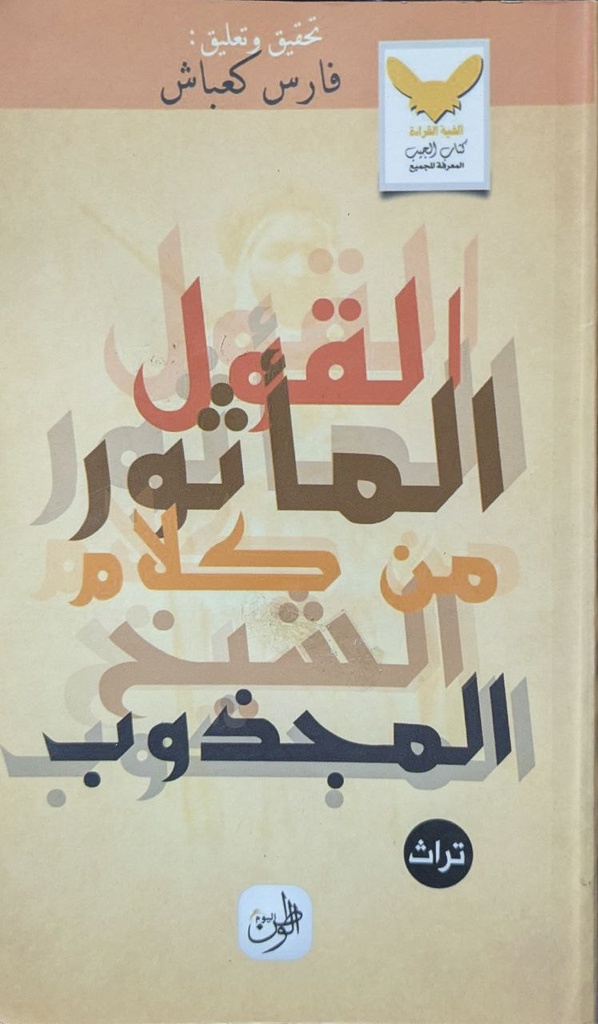 تحقيق وتعليق:
فارس كعباش
الفية القراءة
كتاب الجيب
المعرفة للجميع
القول
المأثور
من كلام
الشيخ
المجذوب
تراث
الوطن اليوم